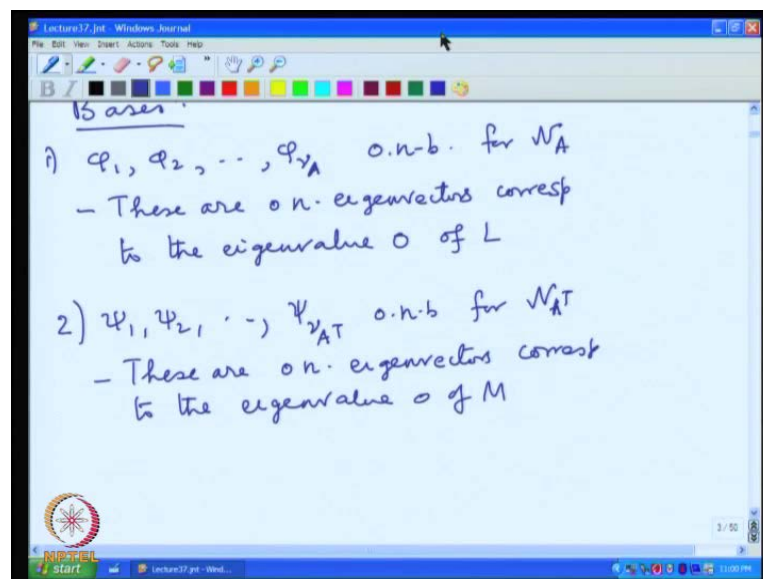 Lecture37.jnt - Windows Journal
File Edit View Insert Actions Tools Help
B I
Bases:
1) φ₁, φ₂, ..., φ_{ν_A} o.n.b. for N_A
- These are o n. eigenvectors corresp
to the eigenvalue 0 of L
2) Ψ₁, Ψ₂, ..., Ψ_{ν_{A^T}} o.n.b for N_{A^T}
- These are o n. eigenvectors corresp
to the eigenvalue 0 of M
3 / 50
NPTEL
start Lecture37.jnt - Wind... 11:00 PM